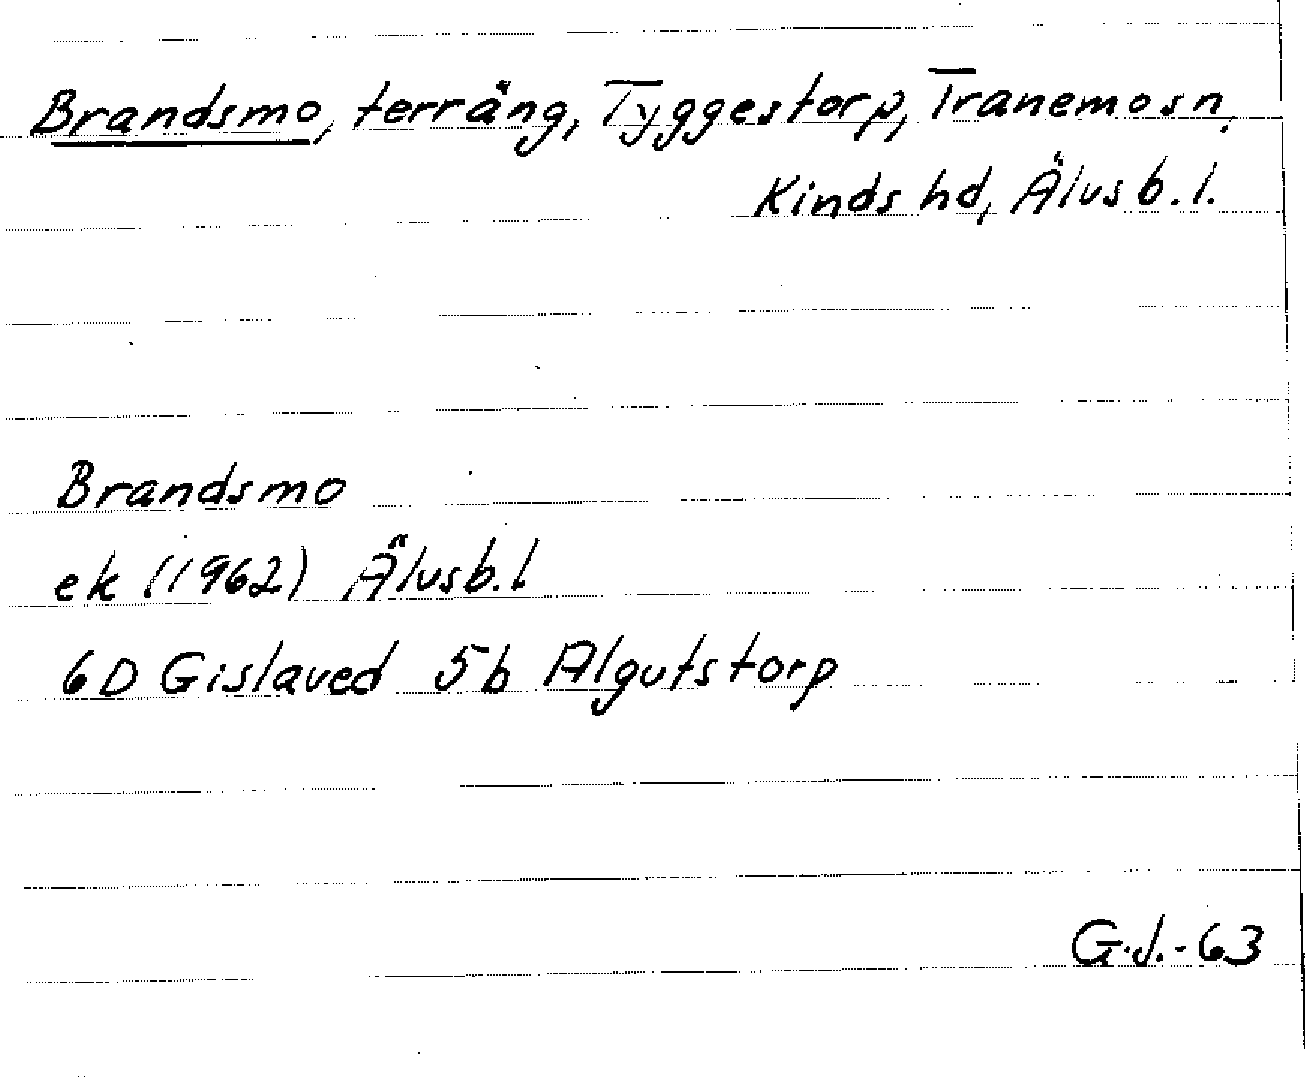 Brandsmo, terräng, Tyggestorp, Tranemo sn,
Kinds hd, Älvsb. l.
Brandsmo
ek (1962) Älvsb. l
6D Gislaved 5b Algutstorp
G.J.-63